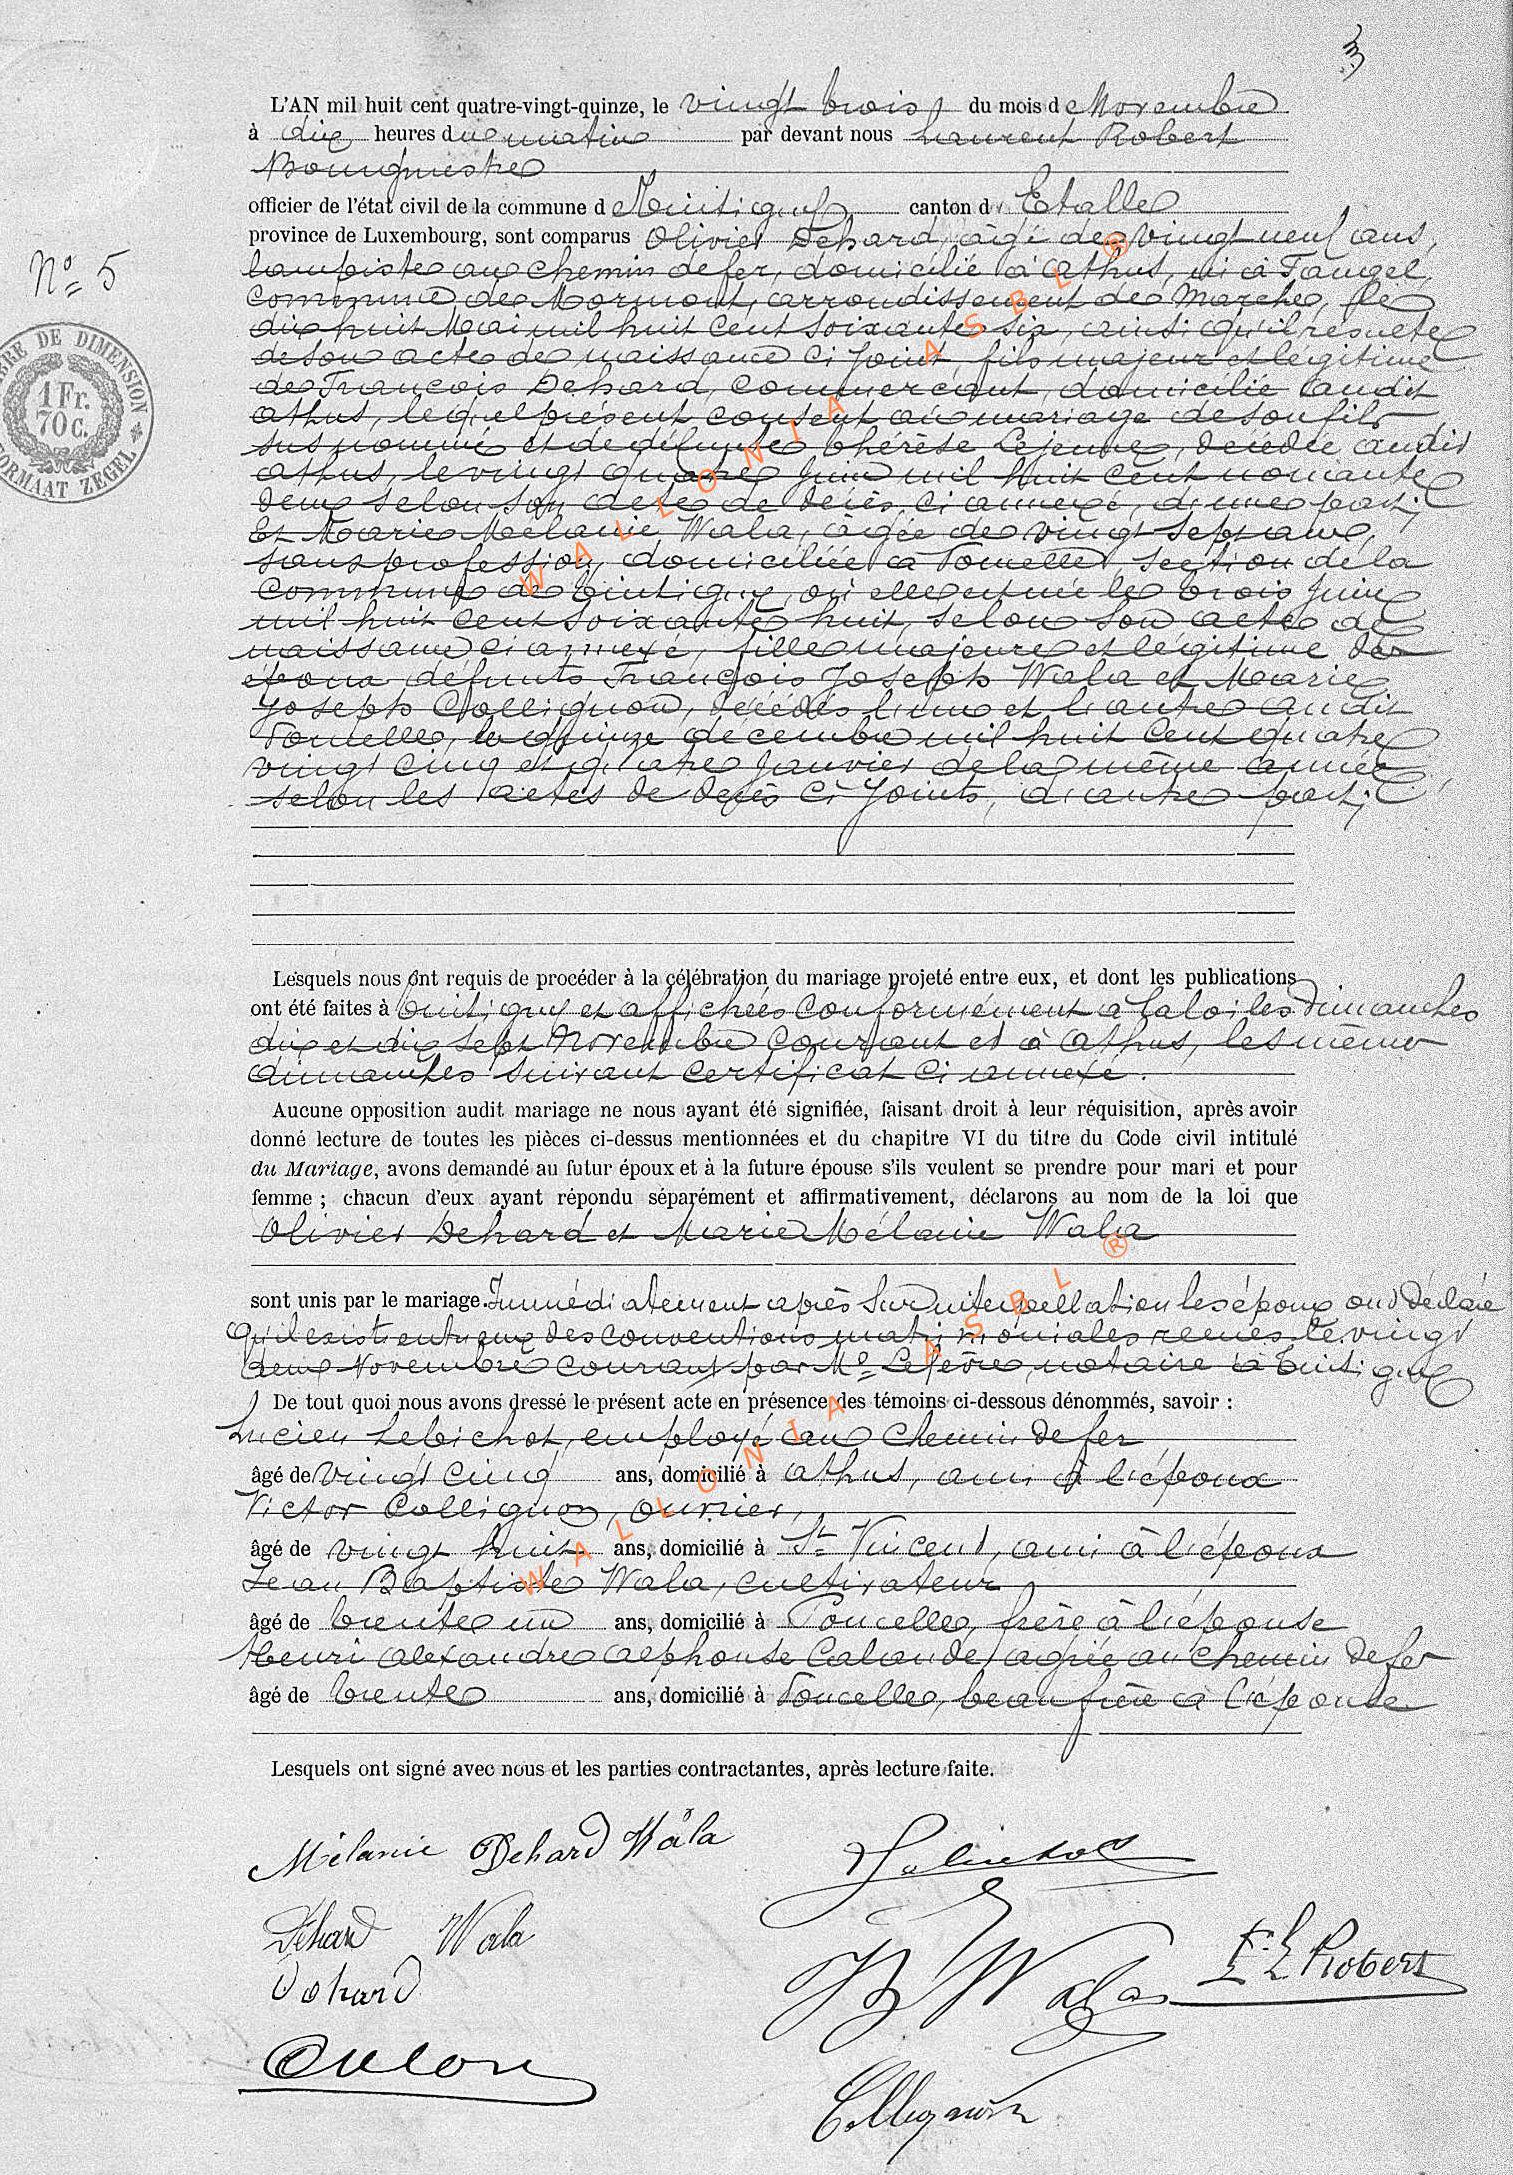 3
L'AN mil huit cent quatre-vingt-quinze, le vingt trois du mois de Novembre
à dix heures du matin par devant nous Laurent Robert
Bourgmestre
officier de l'état civil de la commune d e Tintigny canton d' Etalle
province de Luxembourg, sont comparus Olivier Dehard, âgé de vingt neuf ans,
lampiste au chemin de fer, domicilié à Athus, né à Fanzel,
Commune de Mormont, arrondissement de Marche, le
dix huit Mai mil huit Cent soixante six, ainsi qu'il résulte
N° 5
de son acte de naissance ci joint, fils majeur et légitime
de François Dehard, Commerçant, domicilié audit
Athus, lequel présent consent au mariage de son fils
sus nommé et de défunte Thérèse Lejeune, décédée audit
Athus, le vingt quatre Juin mil huit Cent nonante
deux selon son acte de décès, ci annexé, d'une part;
Et Marie Mélanie Wala, âgée de vingt sept ans,
sans profession, domiciliée à Poncelle, section de la
Commune de Tintigny, où elle est née le trois Juin
mil huit Cent soixante huit, selon son acte de
naissance ci annexé, fille majeure et légitime des
époux défunts François Joseph Wala et Marie
Joseph Collignon, décédés l'un et l'autre audit
Poncelle, le quinze décembre mil huit Cent quatre
vingt cinq et quatre Janvier de la même année
selon les actes de décès ci joints, d'autre part;
TIMBRE DE DIMENSION
1 Fr.
70 c.
FORMAAT ZEGEL
Lesquels nous ont requis de procéder à la célébration du mariage projeté entre eux, et dont les publications
ont été faites à Tintigny et affichées Conformément à la loi les Dimanches
dix et dix sept Novembre Courant et à Athus, les mêmes
dimanches suivant Certificat ci annexé.
Aucune opposition audit mariage ne nous ayant été signifiée, faisant droit à leur réquisition, après avoir
donné lecture de toutes les pièces ci-dessus mentionnées et du chapitre VI du titre du Code civil intitulé
du Mariage, avons demandé au futur époux et à la future épouse s'ils veulent se prendre pour mari et pour
femme ; chacun d'eux ayant répondu séparément et affirmativement, déclarons au nom de la loi que
Olivier Dehard et Marie Mélanie Wala
sont unis par le mariage. Immédiatement après Sur interpellation les époux ont déclaré
qu'il existe entre eux des conventions matrimoniales reçues le vingt
deux Novembre Courant par Me Lefèvre, notaire à Tintigny
De tout quoi nous avons dressé le présent acte en présence des témoins ci-dessous dénommés, savoir :
Lucien Lebichot, employé au Chemin de fer
âgé de vingt Cinq ans, domicilié à Athus, ami à l'époux
Victor Collignon, ouvrier,
âgé de vingt huit ans, domicilié à St Vincent, ami à l'époux
Jean Baptiste Wala, cultivateur
âgé de trente un ans, domicilié à Poncelle, frère à l'épouse
Henri Alexandre Alphonse Calande, agréé au Chemin de fer
âgé de trente ans, domicilié à Poncelle, beau frère à l'épouse
Lesquels ont signé avec nous et les parties contractantes, après lecture faite.
Mélanie Dehard Wala
Dehard Wala
Dehard
JB Wala
L Robert
Collignon
WALLONIA ASBL ®
WALLONIA ASBL ®